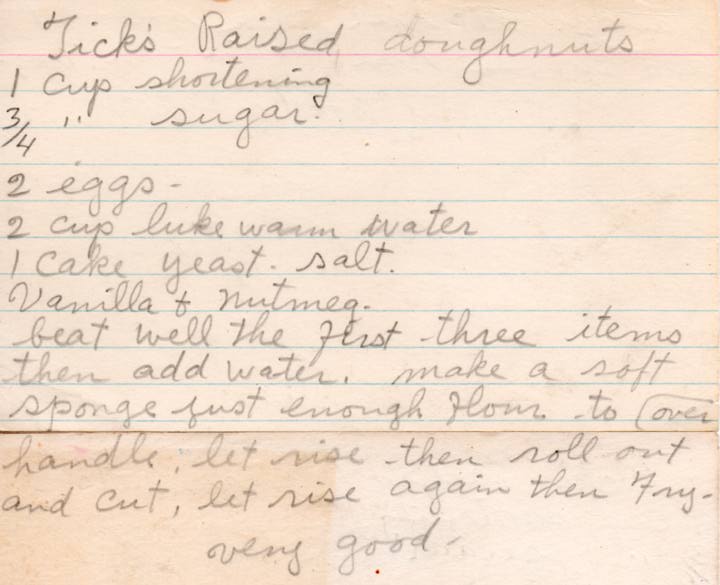 Tick's Raised doughnuts
1 cup shortening
3/4 " sugar.
2 eggs-
2 cup luke warm water
1 cake yeast. salt.
Vanilla & nutmeg.
beat well the first three items
then add water. make a soft
sponge just enough flour to (over
handle, let rise then roll out
and cut, let rise again then Fry-
very good-